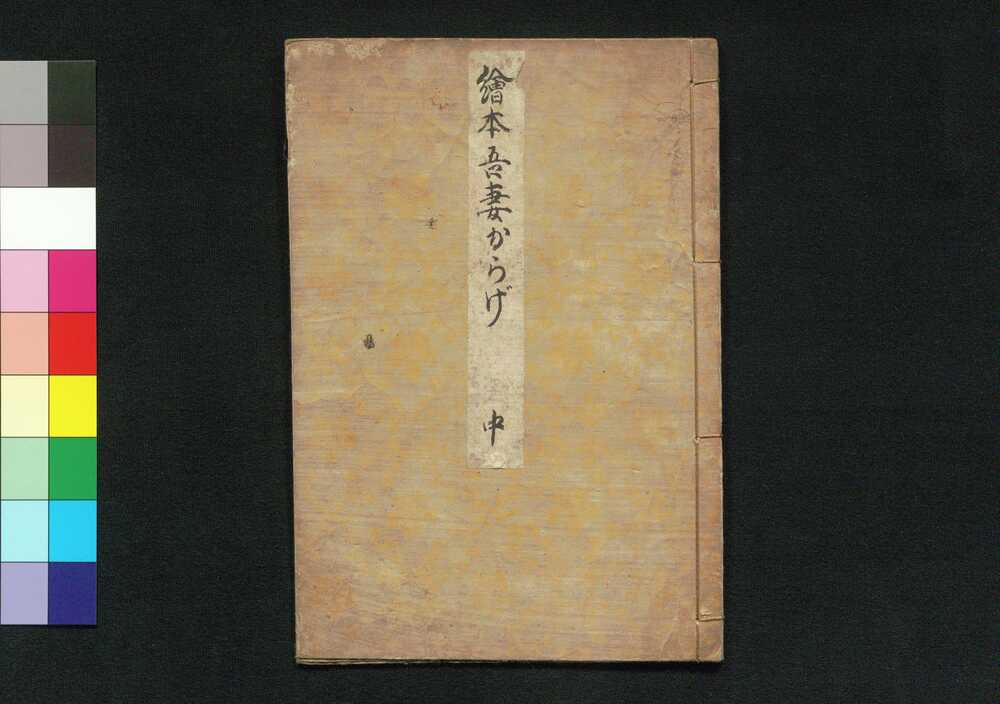 繪本吾妻からげ
中